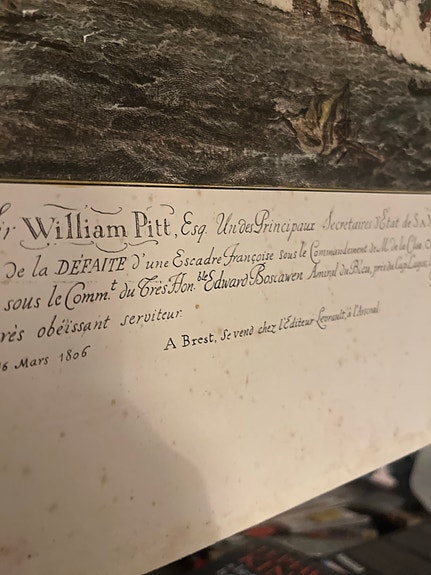 r William Pitt, Esq. Un des Principaux Secretaires d'Etat de S.
de la DÉFAITE d'une Escadre Françoise sous le Commandement de M. de la Clue,
sous le Comm.t du Très Hon.ble Edward Boscawen Amiral du Bleu, près du Cap Lagos,
rès obéissant serviteur.
6 Mars 1806
A Brest, Se vend chez l'Editeur Levrault, à l'Arsenal